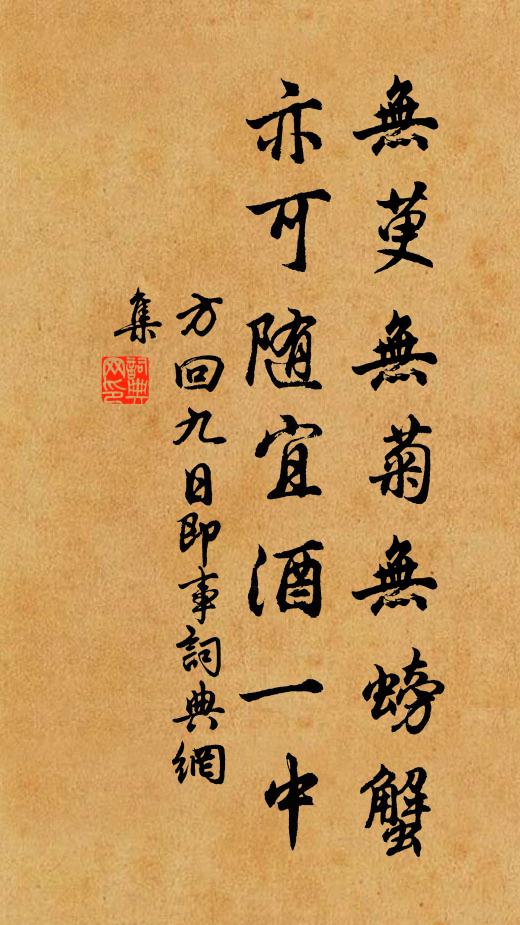 無萸無菊無螃蟹
亦可随宜酒一中
方回九日即事詞典網
集
詞典
网印